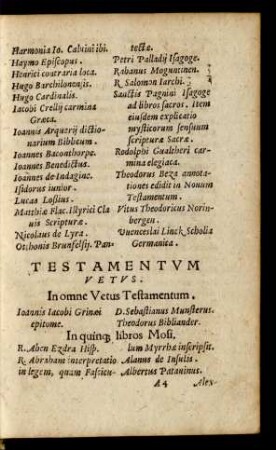 Harmonia Io. Calvini ibi.
Haymo Episcopus.
Henrici contraria loca.
Hugo Barchilonensis.
Hugo Cardinalis.
Iacobi Crellij carmina
Græca.
Ioannis Arquerij dictio-
narium Biblicum.
Ioannes Baconthorpe.
Ioannes Benedictus.
Ioannes de Indagine.
Isidorus iunior.
Lucas Lossius.
Matthiæ Flac. Illyrici Cla
vis Scripturæ.
Nicolaus de Lyra.
Otthonis Brunfelsij. Pan-
tectæ.
Petri Palladij Isagoge.
Rabanus Moguntinen.
R. Salomon Iarchi.
Sanctis Pagnini Isagoge
ad libros sacros. Item
eiusdem explicatio
mysticorum sensuum
scripturæ Sacræ.
Rodolphi Gualtheri car-
mina elegiaca.
Theodorus Beza annota-
tiones edidit in Nouum
Testamentum.
Vitus Theodoricus Norin-
bergen.
Vuenceslai Linck Scholia
Germanica.
TESTAMENTVM
VETVS.
In omne Vetus Testamentum.
Ioannis Iacobi Grinæi
epitome.
D. Sebastianus Munsterus.
Theodorus Bibliander.
In quinq; libros Mosi.
R. Aben Ezdra Hisp.
R. Abraham interpretatio
in legem, quam Fascicu-
lum Myrrhæ inscripsit.
Alanus de Insulis.
Albertus Patauinus.
A 4 Alex-